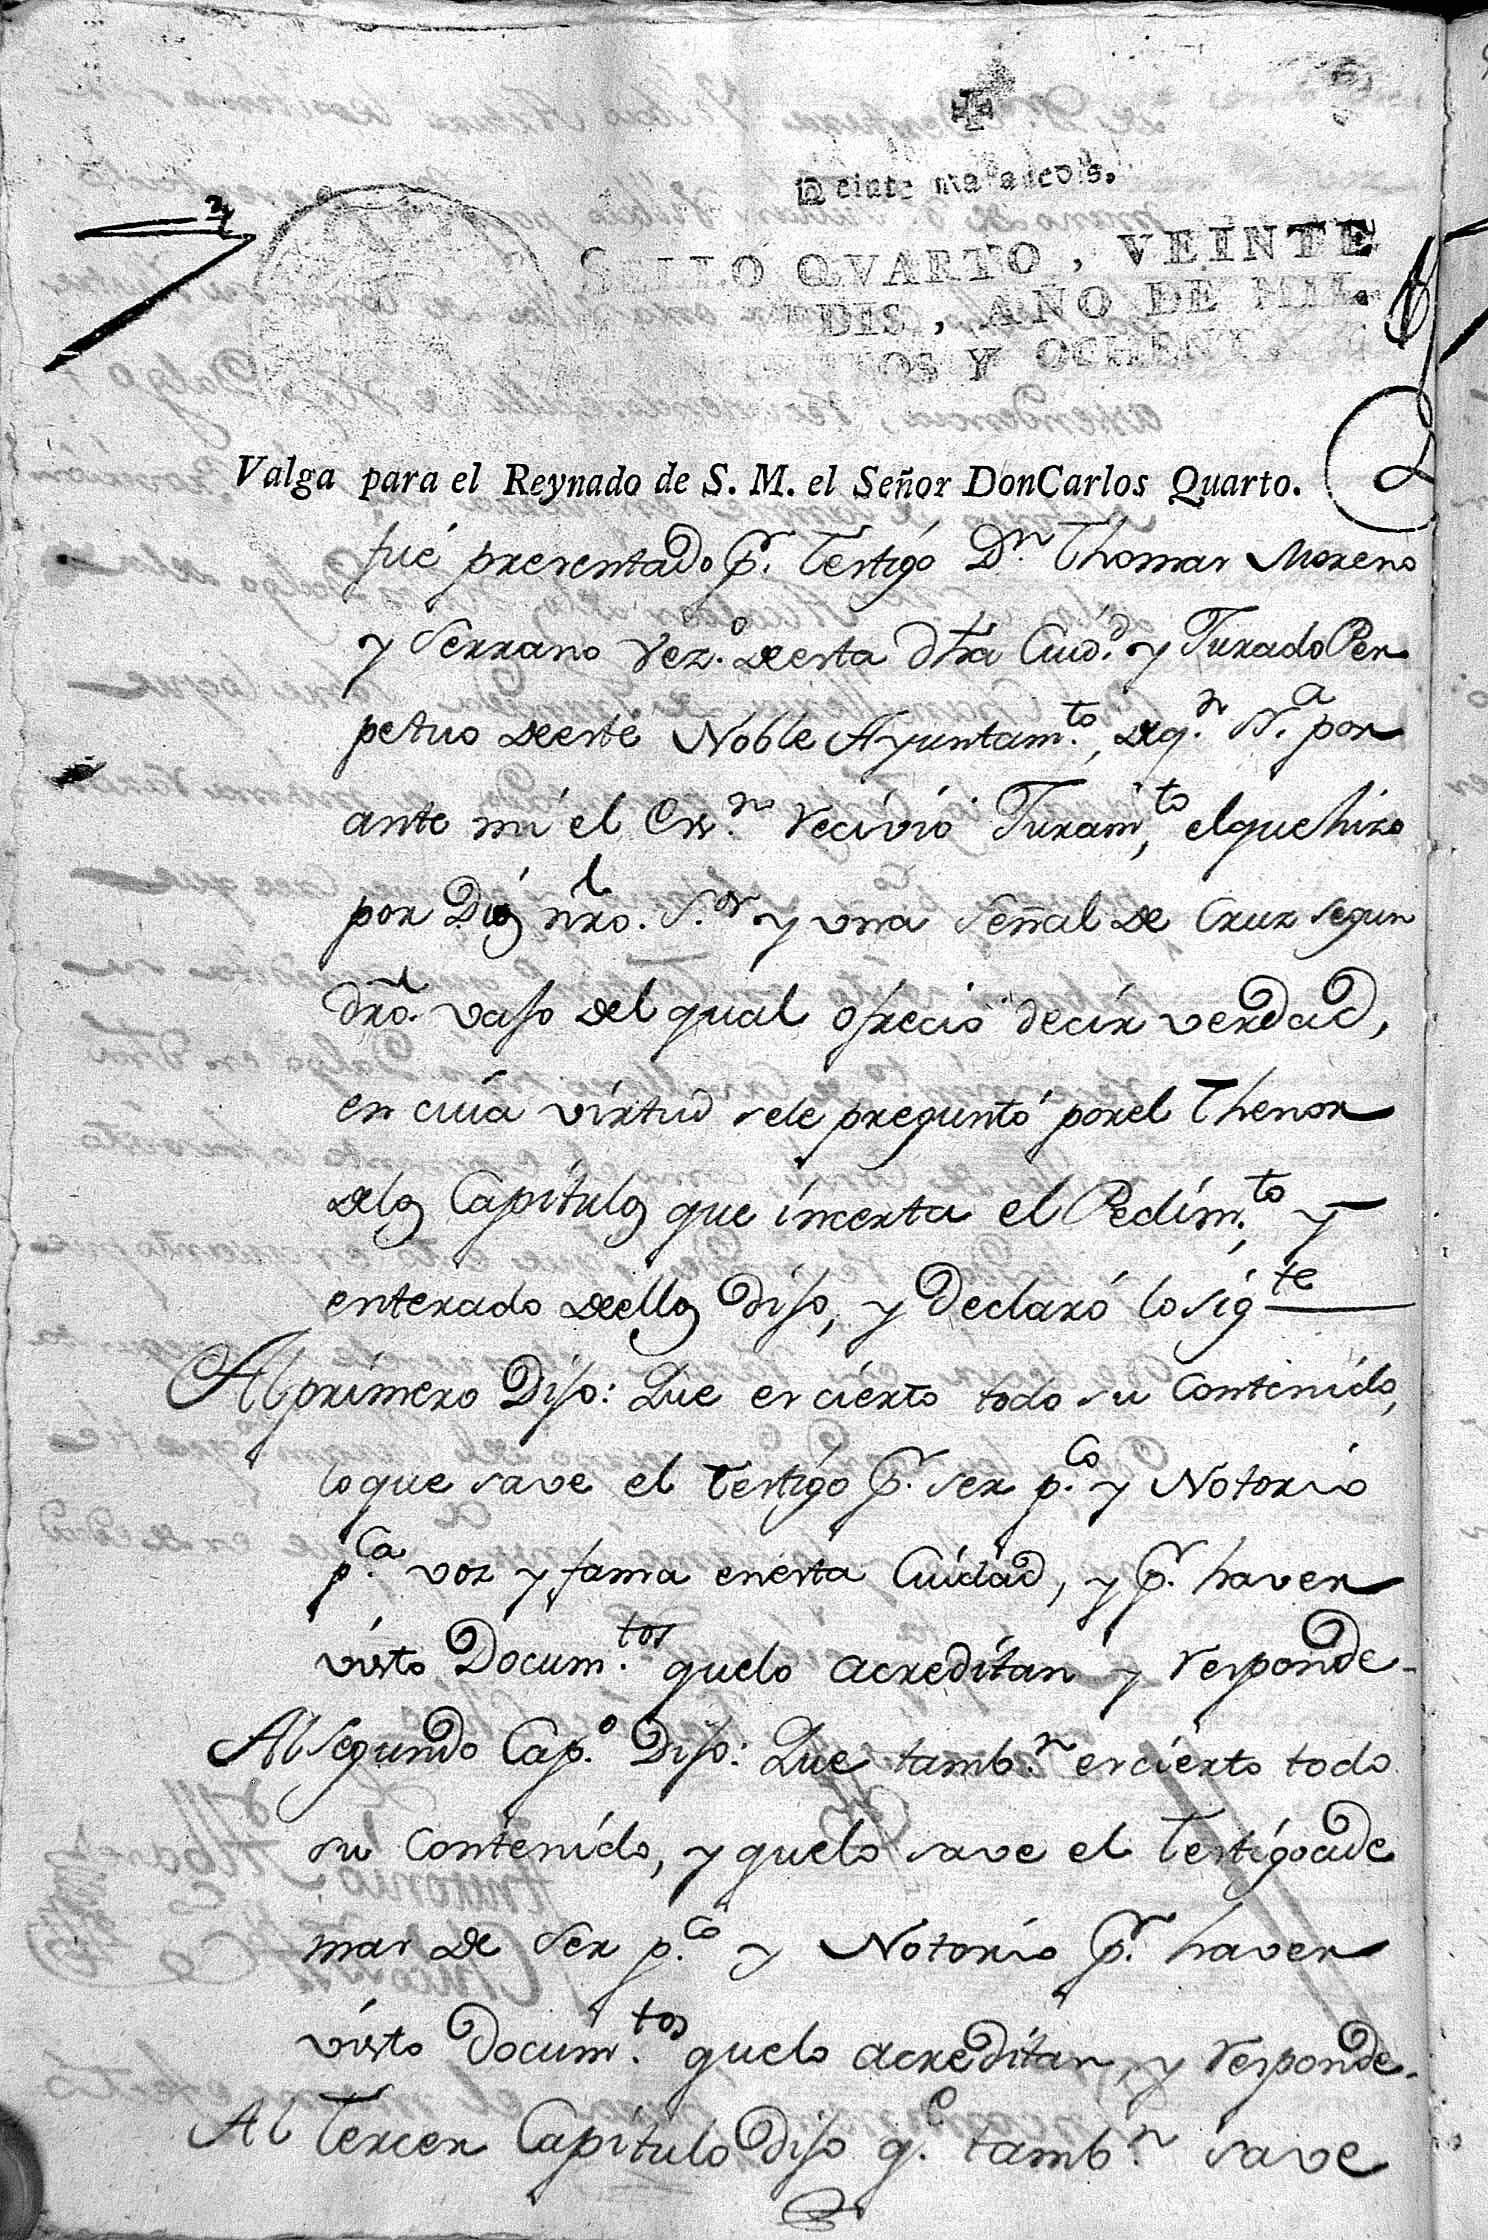 Veinte maravedis.
SELLO QVARTO, VEINTE
DIS, AÑO DE MIL
TOS Y OCHENT
Valga para el Reynado de S. M. el Señor DonCarlos Quarto.
fué presentado pr. Testigo Dn. Thomas Moreno
y Serrano Vezo. de esta dha Ciud. y Jurado Per
petuo de este Noble Ayuntamto, de qn. Sa. por
ante mi el Esno. recivio Juramto, el que hizo
por Dios nro. Sor. y vna señal de Cruz segun
dro. vajo del qual ofrecio decir verdad,
en cuia virtud se le preguntó por el Thenor
de los Capitulos que incerta el Pedimto, y
enterado de ellos dijo, y declaró lo sigte
Al primero Dijo: Que es cierto todo su contenido,
lo que save el Testigo pr. ser pco. y Notorio
pca. voz y fama en esta Ciudad, y pr. haver
visto Documtos. que lo acreditan y responde-
Al segundo Capo. Dijo: Que tambn. es cierto todo
su contenido, y que lo save el Testigo ade
mas de ser pco. y Notorio pr. haver
visto Documtos. que lo acreditan, y responde-
Al Tercer Capitulo dijo qe. tambn. save